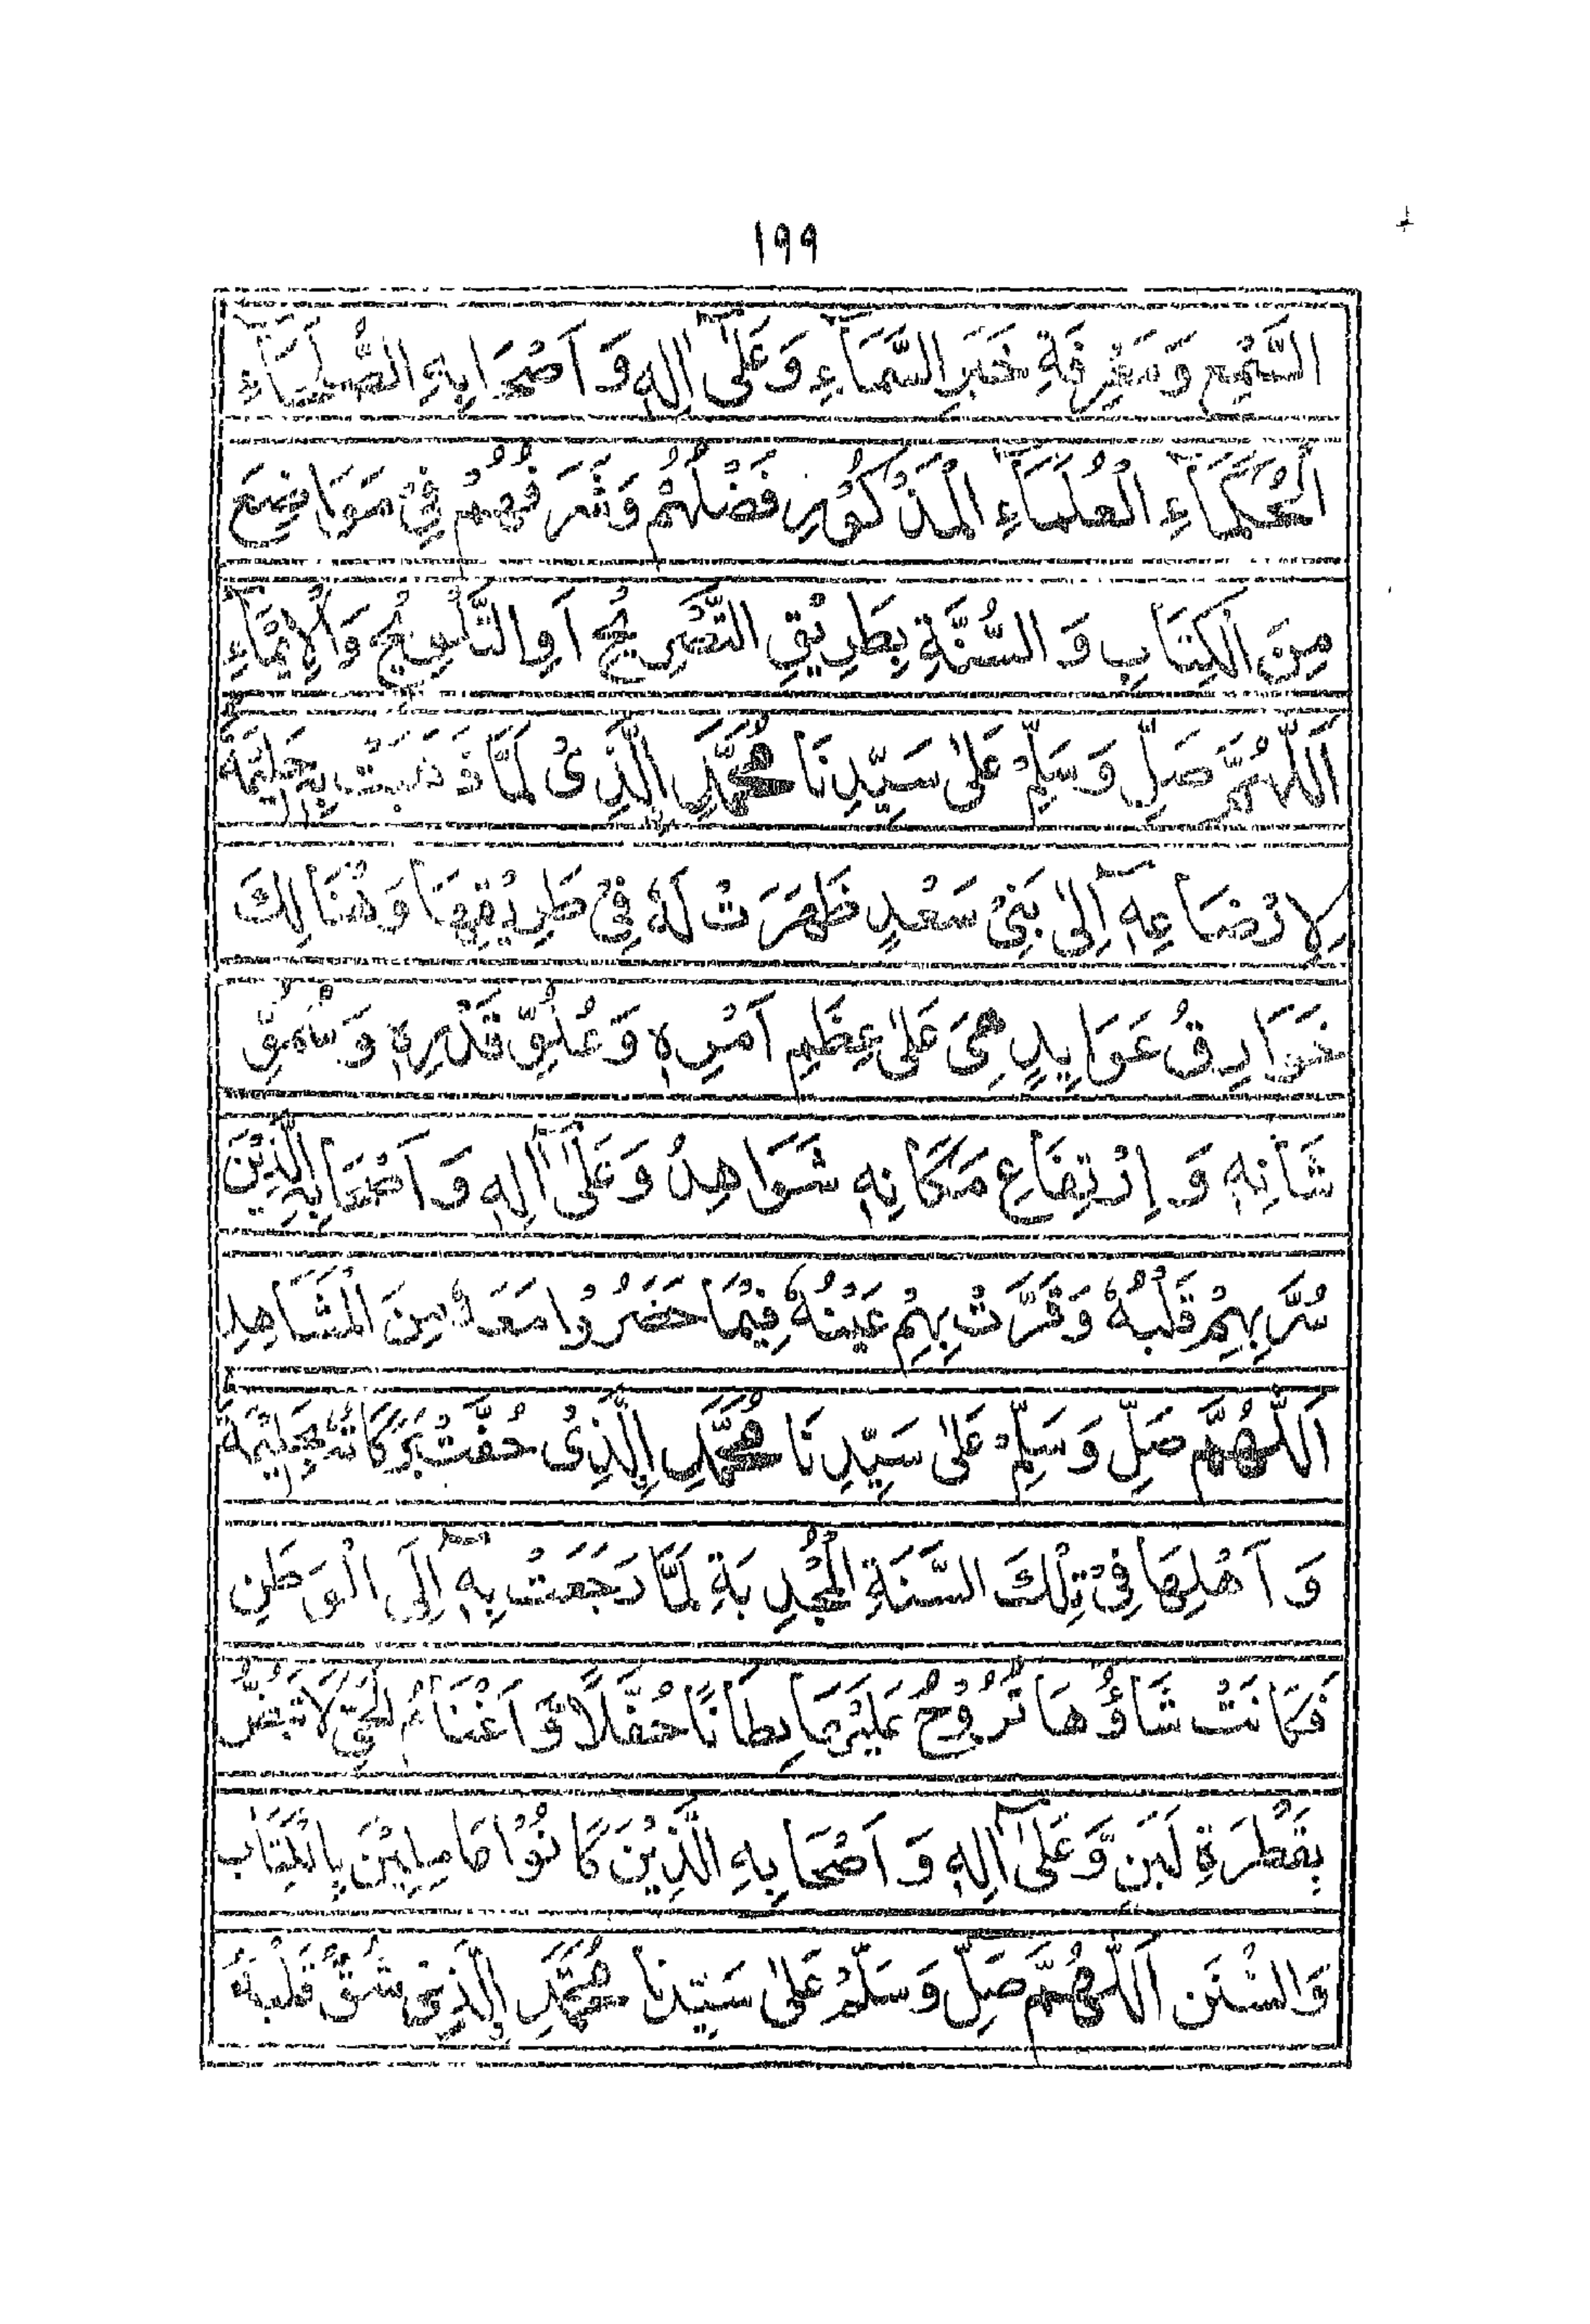 ١٩٩
السَّمْعِ وَمَعْرِفَةِ خَبَرِ السَّمَآءِ وَعَلٰٓى اٰلِهٖ وَاَصْحَابِهِ الصُّلَحَآءِ
الْحُكَمَآءِ الْعُلَمَآءِ الْمَذْكُوْرِ فَضْلُهُمْ وَشَرَفُهُمْ فِيْ مَوَاضِعَ
مِنَ الْكِتَابِ وَالسُّنَّةِ بِطَرِيْقِ التَّصْرِيْحِ اَوِ التَّلْوِيْحِ وَالْاِيْمَآءِ
اَللّٰهُمَّ صَلِّ وَسَلِّمْ عَلٰى سَيِّدِنَا مُحَمَّدِ الَّذِىْ لَمَّا ذَهَبَتْ بِهٖ حَلِيْمَةُ
لِاِرْضَاعِهٖٓ اِلٰى بَنِيْ سَعْدٍ ظَهَرَتْ لَهٗ فِيْ طَرِيْقِهَا وَهُنَالِكَ
خَوَارِقُ عَوَايِدٍ هِىَ عَلٰى عِظَمِ اَمْرِهٖ وَعُلُوِّ قَدْرِهٖ وَسُمُوِّ
شَانِهٖ وَاِرْتِفَاعِ مَكَانِهٖ شَوَاهِدُ وَعَلٰٓى اٰلِهٖ وَاَصْحَابِهِ الَّذِيْنَ
سُرَّ بِهِمْ قَلْبُهٗ وَقَرَّتْ بِهِمْ عَيْنُهٗ فِيْمَا حَضَرُوْا مَعَهٗ مِنَ الْمَشَاهِدِ
اَللّٰهُمَّ صَلِّ وَسَلِّمْ عَلٰى سَيِّدِنَا مُحَمَّدِ الَّذِىْ حُفَّتْ بَرَكَاتُهٗ بِحَلِيْمَةَ
وَاَهْلِهَا فِيْ تِلْكَ السَّنَةِ الْمُجْدِبَةِ لَمَّا رَجَعَتْ بِهٖٓ اِلَى الْوَطَنِ
فَكَانَتْ شَاؤُهَا تَرُوْحُ عَلَيْهَا بِطَانًا حُفَّلًا وَّ اَغْنَامُ الْحَيِّ لَا تَبُضُّ
بِقَطْرَةِ لَبَنٍ وَّعَلٰٓى اٰلِهٖ وَاَصْحَابِهِ الَّذِيْنَ كَانُوْا عَامِلِيْنَ بِالْكِتَابِ
وَالسُّنَنِ اَللّٰهُمَّ صَلِّ وَسَلِّمْ عَلٰى سَيِّدِنَا مُحَمَّدِ الَّذِيْ شُقَّ قَلْبُهٗ